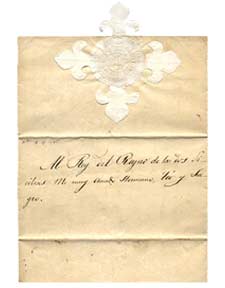 Al Rey del Reyno de las dos Si
cilias Mi muy Amado Hermano, Tio y Sue
gro.